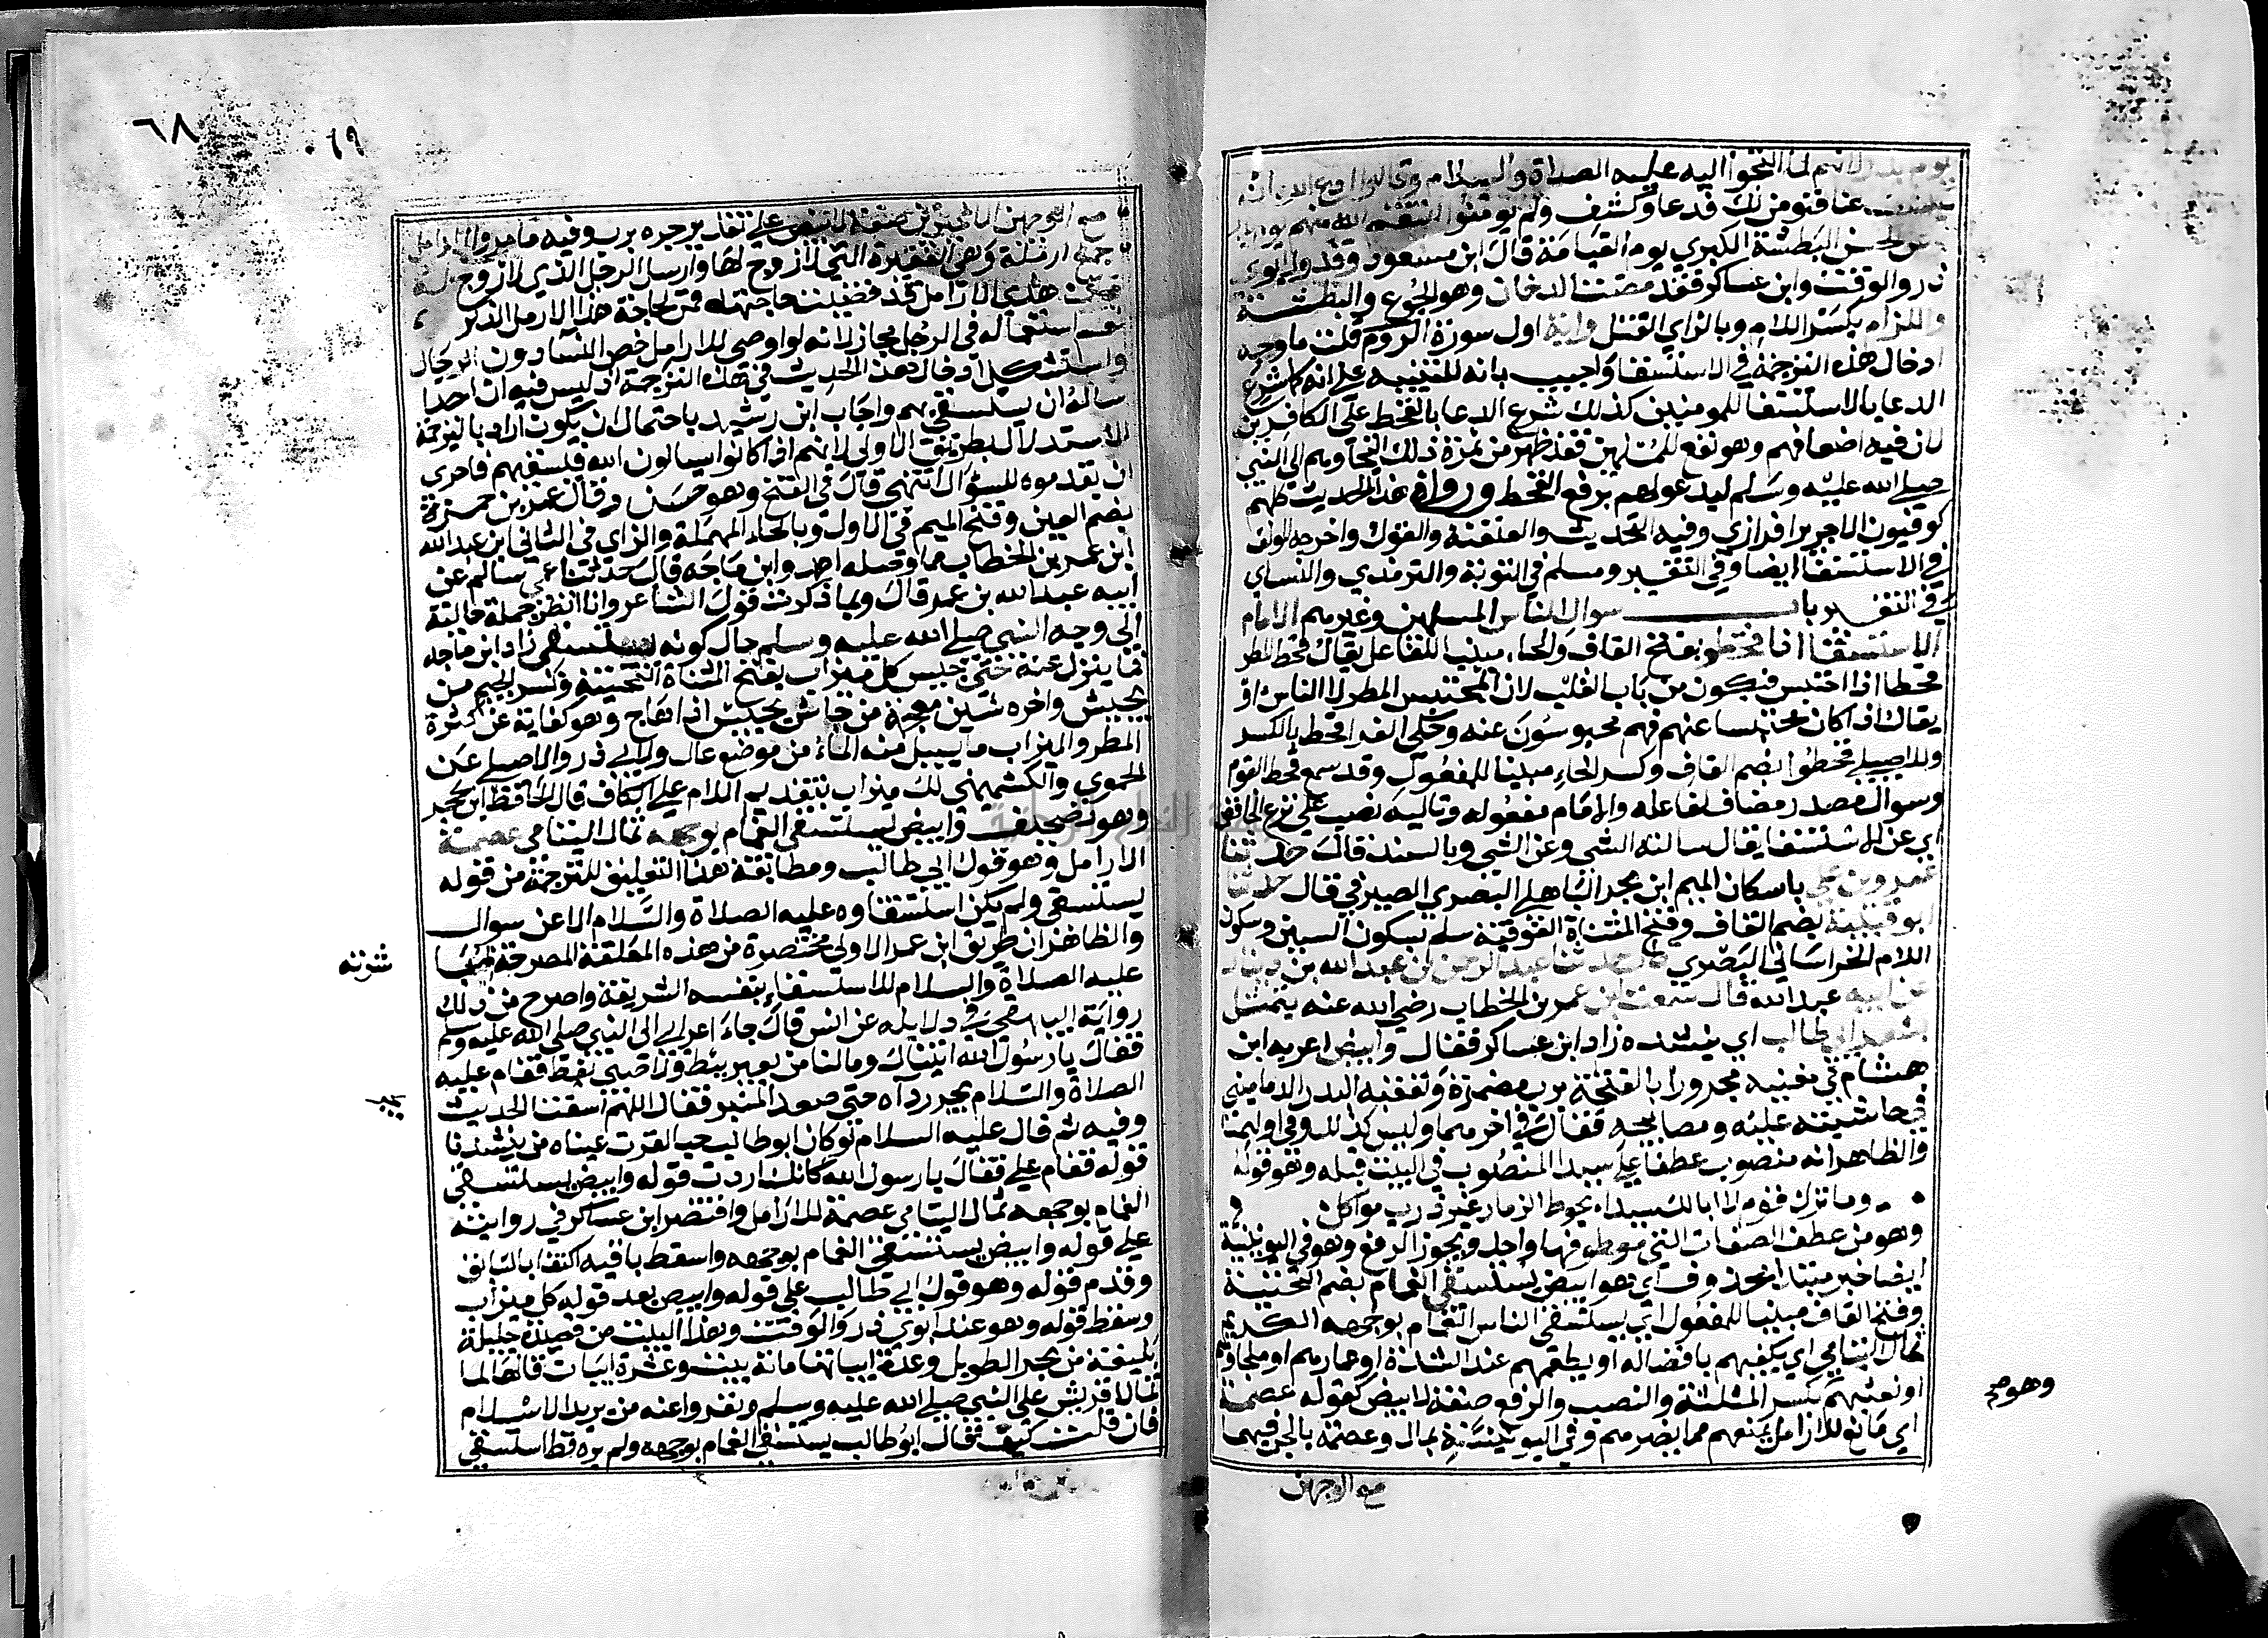 يوم بدر لانهم لما التجوا اليه عليه الصلاة والسلام وقالوا ادع الله ان
يكشف عنا فنومن لك فدعا وكشف ولم يومنوا انتقم الله منهم يوم بدر
وعن الحسن البطشة الكبري يوم القيامة قال ابن مسعود وقد ولابوي
ذر والوقت وابن عساكر فقد مضت الدخان وهو الجوع والبطشة
واللزام بكسر اللام وبالزاي القتل واية اول سورة الروم قلت ما وجه
ادخال هذه الترجمة في الاستسقا واجيب بانه للتنبيه على انه كما شرع
الدعا بالاستسقا للمومنين كذلك شرع الدعا بالقحط على الكافرين
لان فيه اضعافهم وهو نفع للمسلمين فقد ظهر من ثمرة ذلك التجاوهم الي النبي
صلى الله عليه وسلم ليدعو لهم برفع القحط ورواة هذا الحديث كلهم
كوفيون الا جرير فرازي وفيه التحديث والعنعنة والقول واخرجه المولف
في الاستسقا ايضا وفي التفسير ومسلم في التوبة والترمذي والنساي
في التفسير باب سوال الناس المسلمين وغيرهم الامام
الاستسقا اذا قحطو بفتح القاف والحاء مبنيا للفاعل يقال قحط المطر
قحطا اذا احتبس فيكون من باب القلب لان المحتبس المطر لا الناس او
يقال اذا كان محتبسا عنهم فهم محبوسون عنه وحكي الفرا قحط بالكسر
وللاصيلي قحطوا بضم القاف وكسر الحاء مبنيا للمفعول وقد سمع قحط القوم
وسوال مصدر مضاف لفاعله والامام مفعوله وتاليه نصب على نزع الخافض
اي عن الاستسقا يقال سالته الشي وعن الشي وبالسند قال حدثنا
عمرو بن علي باسكان الميم ابن بحر الباهلي البصري الصيرفي قال حدثنا
ابو قتيبة بضم القاف وفتح المثناة الفوقية سلم بسكون السين وسكون
اللام الخراساني البصري قال حدثنا عبد الرحمن ابن عبد الله بن دينار
عن ابيه عبد الله قال سمعت ابن عمر بن الخطاب رضي الله عنه يتمثل
بشعر ابي طالب اي ينشده زاد ابن عساكر فقال وابيض اعربه ابن
هشام في مغنيه مجرورا بالفتحة برب مضمرة وتعقبه البدر الدماميني
في حاشيته عليه ومصابيحه فقال في اخرهما وليس كذلك وفي اولهما
والظاهر انه منصوب عطفا على سيدا المنصوب في البيت قبله وهو قوله
وما ترك قوم لا ابا لك سيدا يحوط الذمار غير ذرب مواكل
وهو من عطف الصفات التي موصوفها واحد ويجوز الرفع وهو في اليونينية
ايضا خبر مبتدا محذوف اي هو ابيض يستسقي الغمام بضم التحتية
وفتح القاف مبنيا للمفعول اي يستسقي الناس الغمام بوجهه الكريم
ثمال اليتامي اي يكفيهم بافضاله او يطعمهم عند الشدة او عمادهم او ملجاوهم
او مغيثهم بكسر المثلثة والنصب والرفع صفة لابيض كقوله عصمة
اي مانع للارامل يمنعهم مما يضرهم وفي اليونينية ثمال وعصمة بالجر فيهما
وهو صح
مع الوجهين
٦٨
٦٩
مع الوجهين الاخيرين صفة لابيض على تقدير جره برب وفيه ما مر والارامل
جمع ارملة وهي الفقيرة التي لا زوج لها وارمل الرجل الذي لا زوج له
هذي الارامل قد قضيت حاجتها فمن لحاجة هذا الارمل الذكر
نعم استعماله في الرجل مجاز لانه لو اوصي للارامل خص النسا دون الرجال
واستشكل ادخال هذا الحديث في هذه الترجمة اذ ليس فيه ان احدا
ساله ان يستسقي بهم واجاب ابن رشيد باحتمال ان يكون اراد بالترجمة
الاستدلال بطريق الاولي لانهم اذا كانوا يسالون الله فيسقيهم فاحري
ان يقدموه للسوال انتهي قال في الفتح وهو حسن وقال عمر بن حمزة
بضم العين وفتح الميم في الاول وبالحاء المهملة والزاي في الثاني ابن عبد الله
ابن عمر بن الخطاب مما وصله احمد وابن ماجه قال حدثنا عمي سالم عن
ابيه عبد الله بن عمر قال وربما ذكرت قول الشاعر وانا انظر جملة حالية
الي وجه النبي صلى الله عليه وسلم حال كونه يستسقي زاد ابن ماجه
فما ينزل عنه حتي يجيش كل ميزاب بفتح المثناة التحتية وكسر الجيم من
يجيش واخره شين معجمة من جاش يجيش اذا هاج وهو كناية عن كثرة
المطر والميزاب ما يسيل منه الماء من موضع عال ولابي ذر والاصيلي عن
الحموي والكشميهني لك ميزاب بتقديم اللام على الكاف قال الحافظ ابن حجر
وهو تصحيف وابيض يستسقي الغمام بوجهه ثمال اليتامي عصمة
الارامل وهو قول ابي طالب ومطابقة هذا التعليق للترجمة من قوله
يستسقي ولم يكن استسقاوه عليه الصلاة والسلام الا عن سوال
والظاهر ان طريق ابن عمر الاولي مختصرة من هذه المعلقة المصرحة
عليه الصلاة والسلام للاستسقاء بنفسه الشريفة واصرح من ذلك
رواية البيهقي في دلايله عن انس قال جاء اعرابي الي النبي صلى الله عليه وسلم
فقال يا رسول الله اتيناك وما لنا من بعير يئط ولا صبي يغط فقام عليه
الصلاة والسلام يجر رداه حتي صعد المنبر فقال اللهم اسقنا الحديث
وفيه ثم قال عليه السلام لو كان ابو طالب حيا لقرت عيناه من ينشدنا
قوله فقام علي فقال يا رسول الله كانك اردت قوله وابيض يستسقي
الغمام بوجهه ثمال اليتامي عصمة للارامل واقتصر ابن عساكر في روايته
على قوله وابيض يستسقي الغمام بوجهه واسقط باقيه اكتفا بالسابق
وقدم قوله وهو قول ابي طالب على قوله وابيض بعد قوله كل ميزاب
وسقط قوله وهو عند ابوي ذر والوقت وهذا البيت من قصيدة جليلة
بليغة من بحر الطويل وعدة ابياتها مائة بيت وعشرة ابيات قالها لما
تمالا قريش على النبي صلى الله عليه وسلم ونفروا عنه من يريد الاسلام
فان قلت كيف قال ابو طالب يستسقي الغمام بوجهه ولم يره قط استسقي